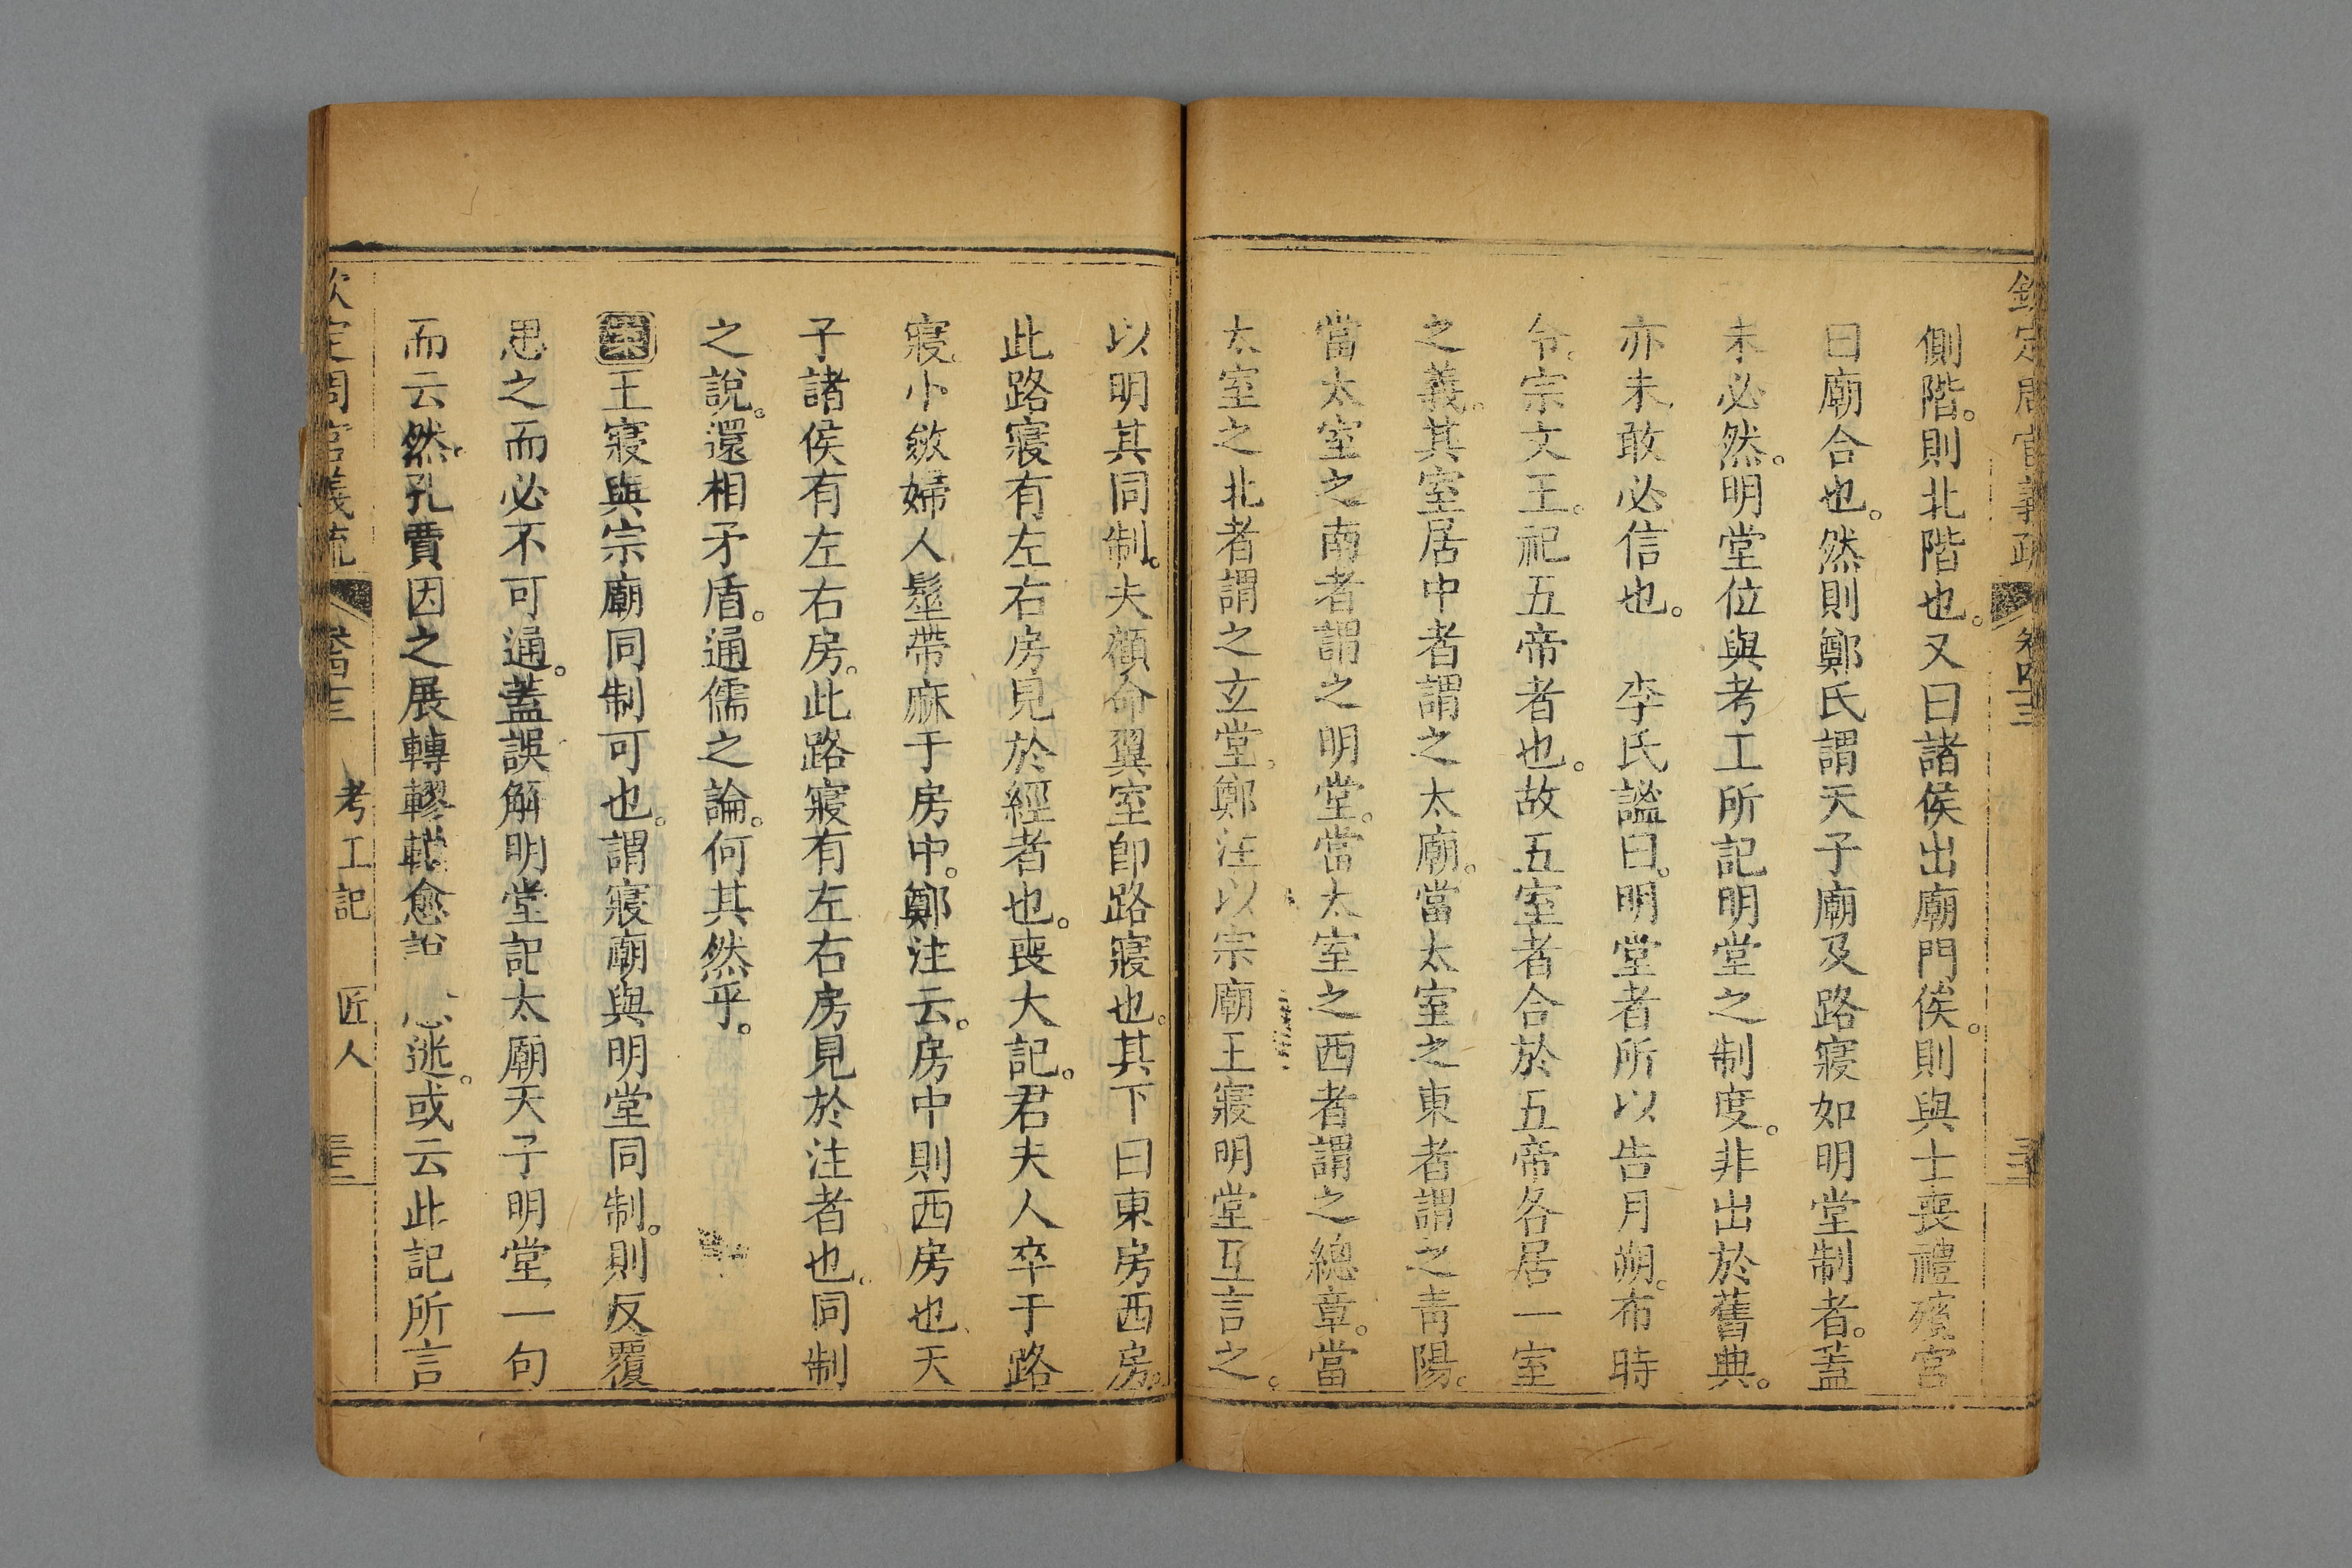 欽定周官義疏 卷四十三 三十三
側階。則北階也。又曰諸侯出廟門俟。則與士喪禮殯宮
曰廟合也。然則鄭氏謂天子廟及路寢如明堂制者。蓋
未必然。明堂位與考工所記明堂之制度。非出於舊典。
亦未敢必信也。 李氏謐曰。明堂者所以告月朔。布時
令。宗文王。祀五帝者也。故五室者合於五帝各居一室
之義。其室居中者謂之太廟。當太室之東者謂之青陽。
當太室之南者謂之明堂。當太室之西者謂之總章。當
太室之北者謂之玄堂。鄭注以宗廟王寢明堂互言之。
以明其同制。夫顧命翼室即路寢也。其下曰東房西房。
此路寢有左右房見於經者也。喪大記。君夫人卒于路
寢。小斂婦人髽帶麻于房中。鄭注云。房中則西房也。天
子諸侯有左右房。此路寢有左右房見於注者也。同制
之說。還相矛盾。通儒之論。何其然乎。
案王寢與宗廟同制可也。謂寢廟與明堂同制。則反覆
思之而必不可通。蓋誤解明堂記太廟天子明堂一句
而云然。孔賈因之展轉轇轕愈迷。或云此記所言
欽定周官義疏 卷四十三 考工記 匠人 三十三